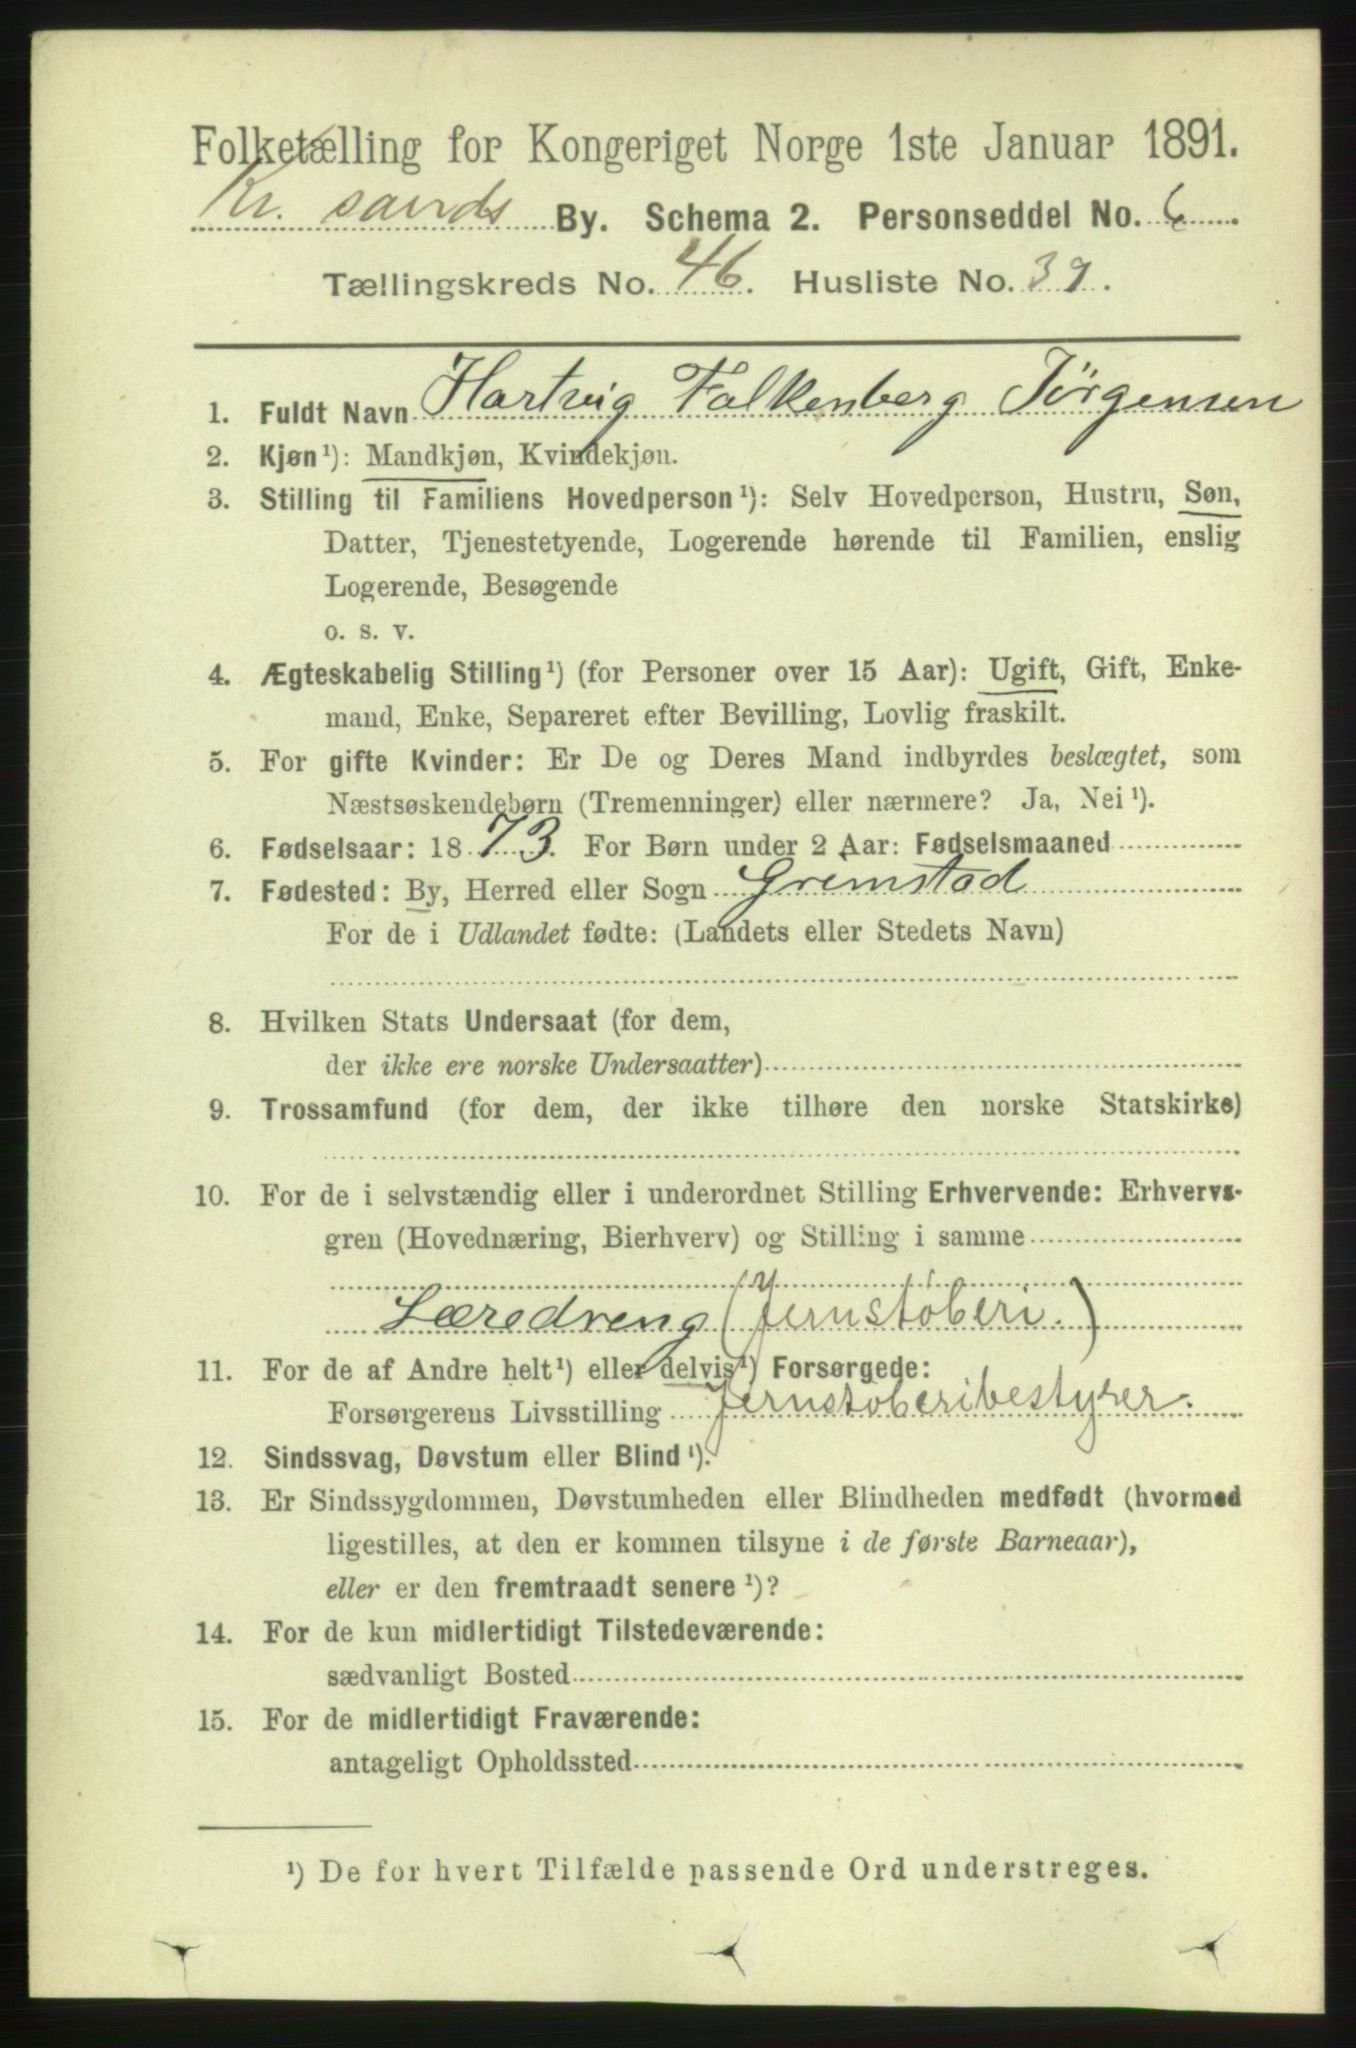 Folketælling for Kongeriget Norge 1ste Januar 1891.
Kr. sands By. Schema 2. Personseddel No. 6.
Tællingskreds No. 46. Husliste No. 39.
1. Fuldt Navn Hartvig Falkenberg Jörgensen
2. Kjøn¹): Mandkjøn, Kvindekjøn.
3. Stilling til Familiens Hovedperson¹): Selv Hovedperson, Hustru, Søn,
Datter, Tjenestetyende, Logerende hørende til Familien, enslig
Logerende, Besøgende
o. s. v.
4. Ægteskabelig Stilling¹) (for Personer over 15 Aar): Ugift, Gift, Enke-
mand, Enke, Separeret efter Bevilling, Lovlig fraskilt.
5. For gifte Kvinder: Er De og Deres Mand indbyrdes beslægtet, som
Næstsøskendebørn (Tremenninger) eller nærmere? Ja, Nei¹).
6. Fødselsaar: 1873. For Børn under 2 Aar: Fødselsmaaned
7. Fødested: By, Herred eller Sogn Grimstad
For de i Udlandet fødte: (Landets eller Stedets Navn)
8. Hvilken Stats Undersaat (for dem,
der ikke ere norske Undersaatter)
9. Trossamfund (for dem, der ikke tilhøre den norske Statskirke)
10. For de i selvstændig eller i underordnet Stilling Erhvervende: Erhvervs-
gren (Hovednæring, Bierhverv) og Stilling i samme
Læredreng (Jernstöberi.)
11. For de af Andre helt¹) eller delvis¹) Forsørgede:
Forsørgerens Livsstilling Jernstoberibestyrer.
12. Sindssvag, Døvstum eller Blind¹).
13. Er Sindssygdommen, Døvstumheden eller Blindheden medfødt (hvormed
ligestilles, at den er kommen tilsyne i de første Barneaar),
eller er den fremtraadt senere¹)?
14. For de kun midlertidigt Tilstedeværende:
sædvanligt Bosted
15. For de midlertidigt Fraværende:
antageligt Opholdssted
¹) De for hvert Tilfælde passende Ord understreges.